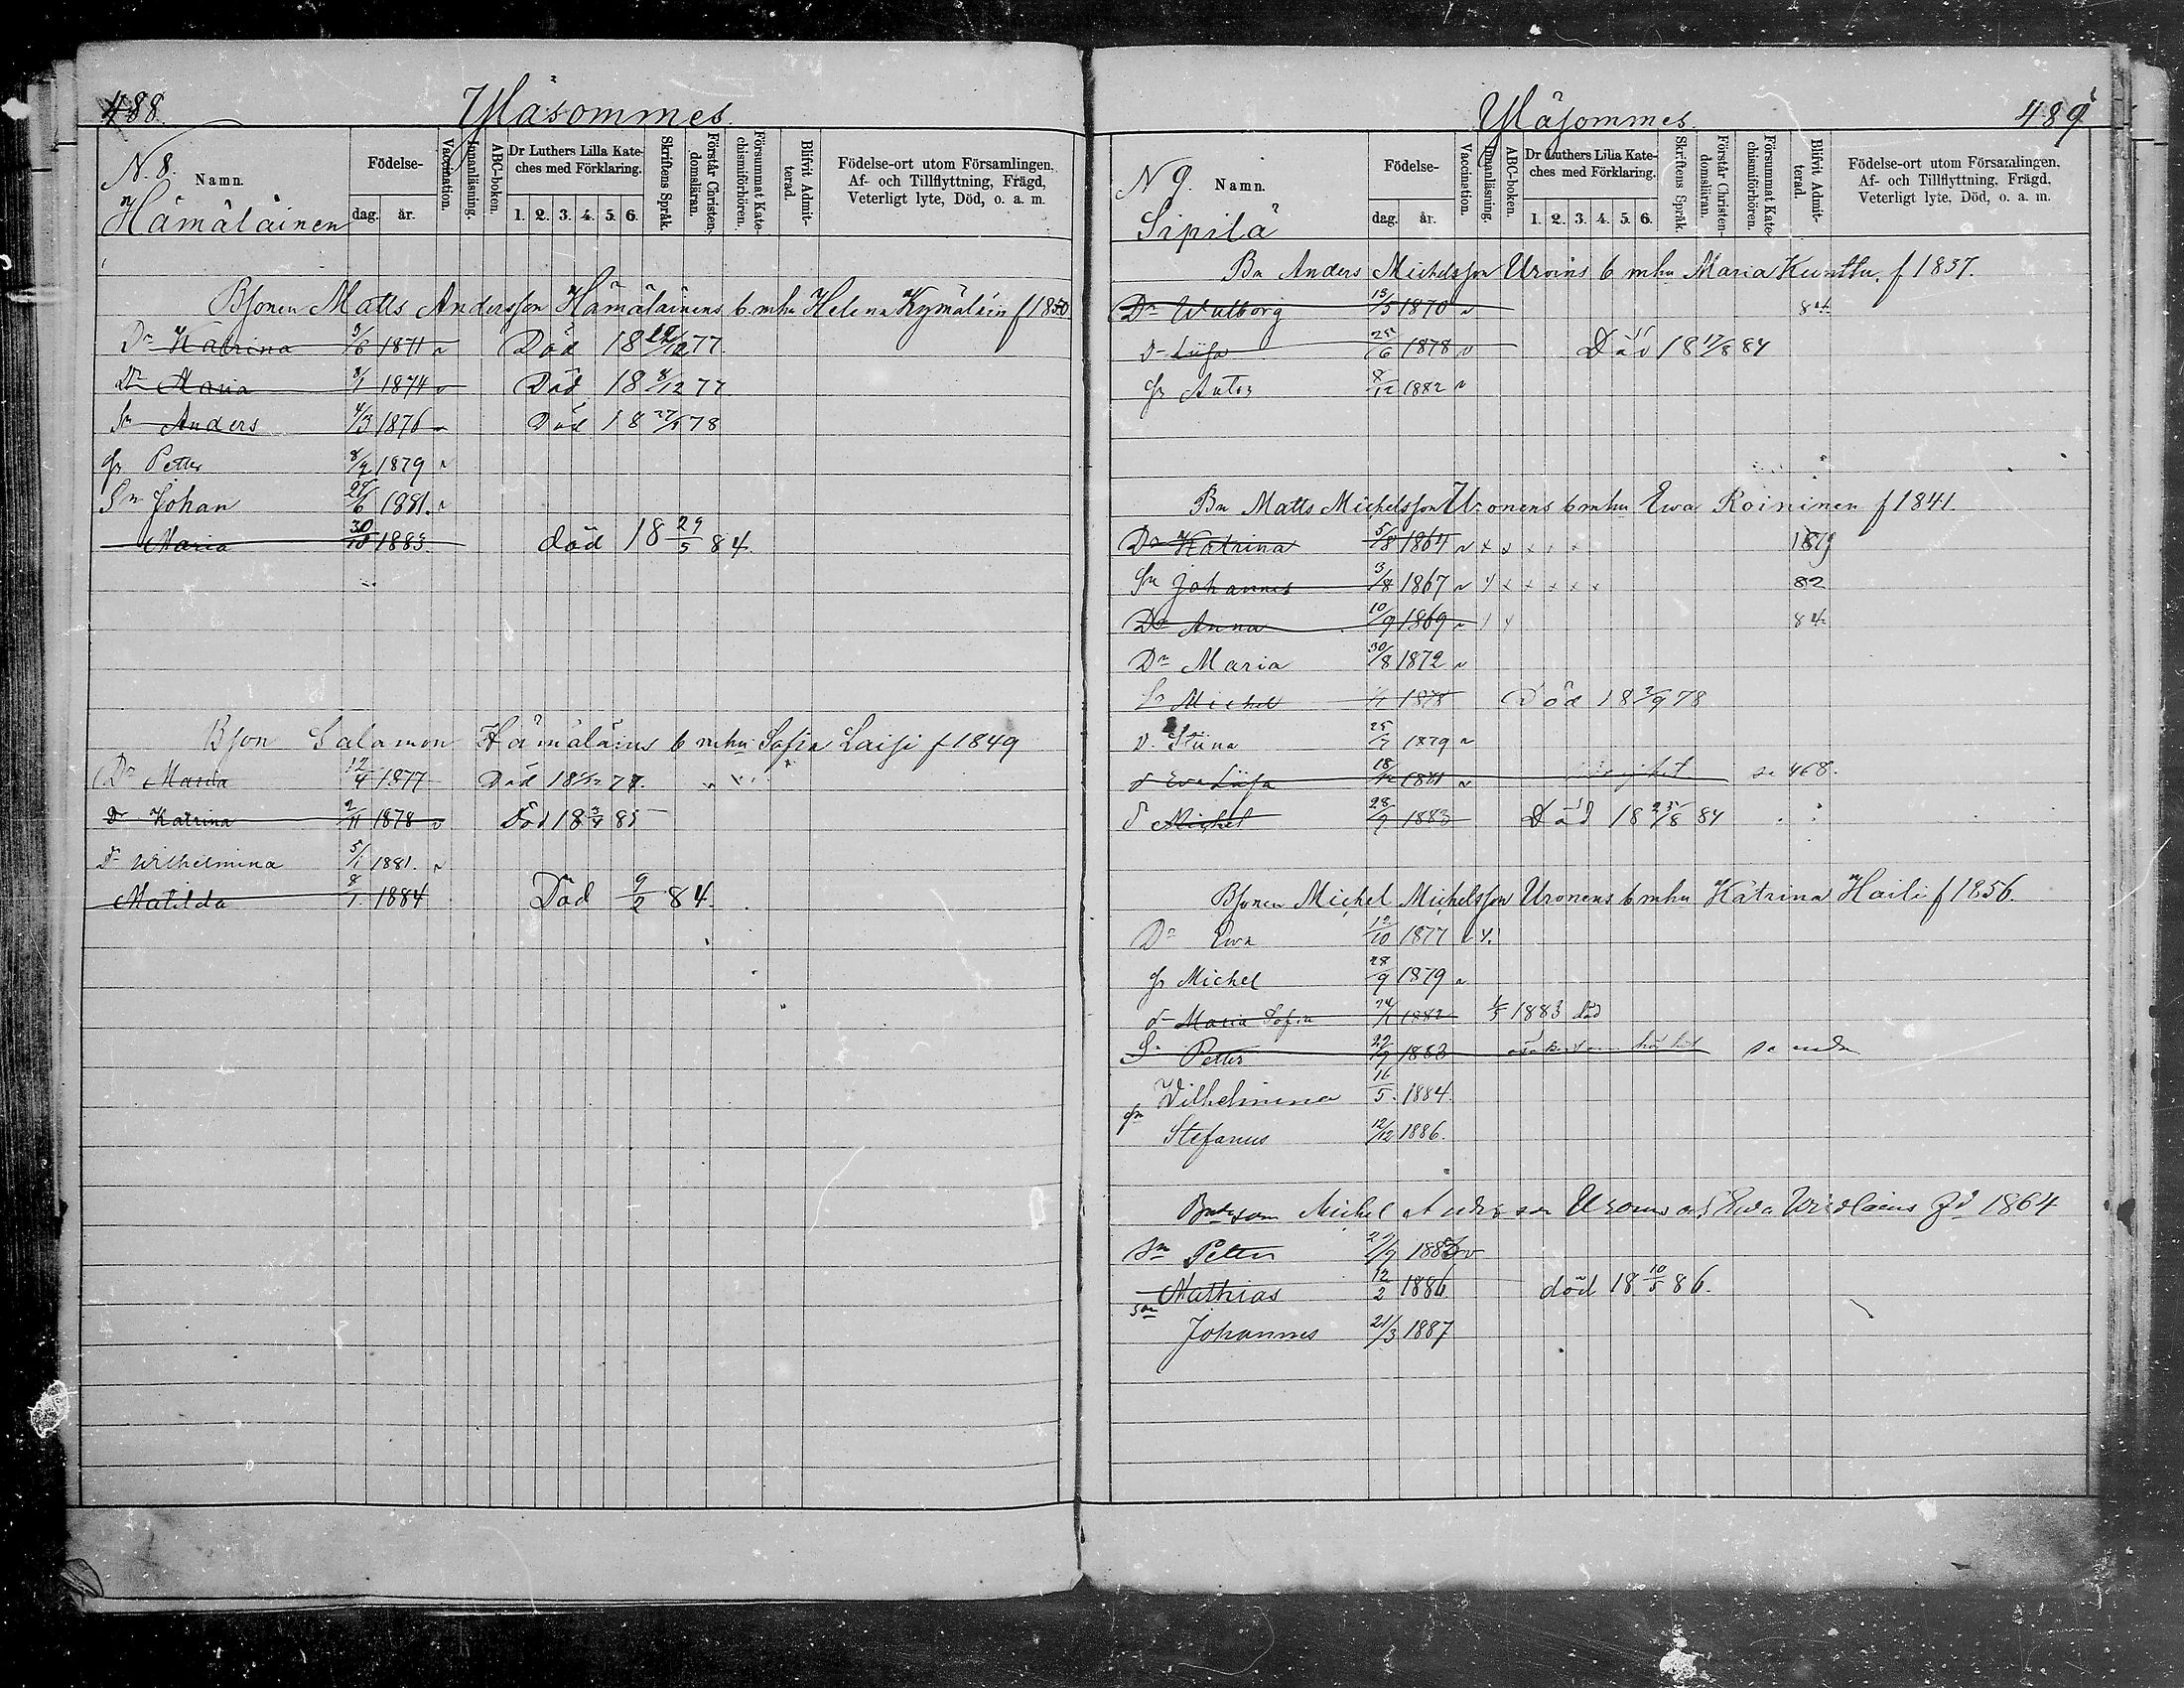 488.
Yläsommes.
N. 8.
Namn.
Hämäläinen
Födelse-
dag. år.
Vaccination.
Innanläsning.
ABC-boken.
Dr Luthers Lilla Kate-
ches med Förklaring.
1. 2. 3. 4. 5. 6.
Skriftens Språk.
Förstår Christen-
domsläran.
Försummat Kate-
chismiförhören.
Blifvit Admit-
terad.
Födelse-ort utom Församlingen,
Af- och Tillflyttning, Frägd,
Veterligt lyte, Död, o. a. m.
Bsonen Matts Andersson Hämäläinens b. mhu Helena Kymäläin f 1850
Dr Katrina 5/6 1871 v Död 18 /12 77.
Dr Maria 8/1 1874 v Död 18 8/12 77.
Sn Anders 4/3 1876 v Död 18 27/1 78
Petter 8/9 1879 v
Sn Johan 1881. v
Maria 30/10 1883. död 18 29/5 84.
Bson Salamon Hämäläins b mhu Sofia Laisi f 1849
Dr Maria 12/4 1877 Död 18 77.
Dr Katrina 2/11 1878 v Död 18 3/4 85
Dr Wilhelmina 5/1 1881. v
Matilda 8/1 1884 Död 9/2 84.
Yläsommes.
489
N 9.
Namn.
Sipilä
Födelse-
dag. år.
Vaccination.
Innanläsning.
ABC-boken.
Dr Luthers Lilla Kate-
ches med Förklaring.
1. 2. 3. 4. 5. 6.
Skriftens Språk.
Förstår Christen-
domsläran.
Försummat Kate-
chismiförhören.
Blifvit Admit-
terad.
Födelse-ort utom Församlingen,
Af- och Tillflyttning, Frägd,
Veterligt lyte, Död, o. a. m.
Bn Anders Michelsson Uroins b mhu Maria Kunttu f 1837.
Dr Walborg 15/5 1870 v 84
d Liisa 25/6 1878 v Död 18 17/8 84
Anton 8/12 1882 v
Bn Matts Michelsson Uronens b mhu Ewa Roininen f 1841.
Dr Katrina 5/8 1864 v x x x x x 1879
Sn Johannes 3/8 1867 v x x x x x x 82
Dr Anna 10/9 1869 v 84
Dr Maria 30/8 1872 v
Sn Michel 1878 Död 18 3/9 78
D. Stina 1879 v
d Eva Liisa 18/12 1881 v se 468.
Michel 28/9 1883 Död 18 25/8 84
Bsonen Michel Michelsson Uronens b mhu Katrina Haili f 1856.
Dr Ewa 12/10 1877
Michel 28/9 1879 v
d Maria Sofia 24/1 1882 1883 död
S. Petter 1883 se nedan
Wilhelmina 16/5 1884.
Stefanus 12/12 1886.
Michel Andersson Uronens Ewa f 1864
Sn Petter 188 v
Mathias 12/2 1886 död 18 10/5 86.
Sn
Johannes 21/3 1887